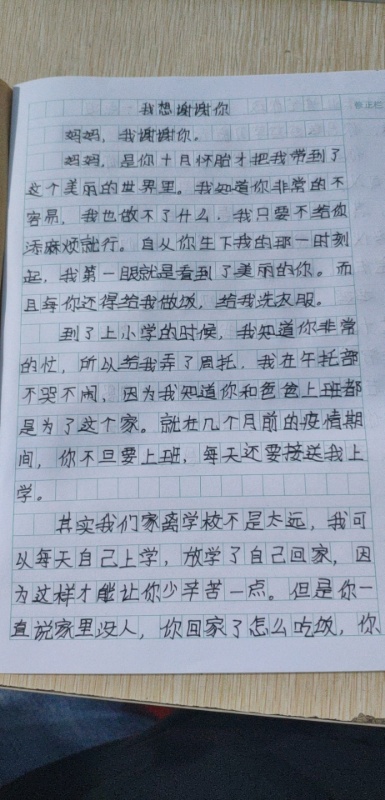 我想谢谢你
妈妈，我谢谢你。
妈妈，是你十月怀胎才把我带到了
这个美丽的世界里。我知道你非常的不
容易，我也做不了什么，我只要不给你
添麻烦就行。自从你生下我的那一时刻
起，我第一眼就是看到了美丽的你。而
且每你还得给我做饭，给我洗衣服。
到了上小学的时候，我知道你非常
的忙，所以给我弄了周托，我在午托部
不哭不闹，因为我知道你和爸爸上班都
是为了这个家。就在几个月前的疫情期
间，你不旦要上班，每天还要接送我上
学。
其实我们家离学校不是太远，我可
以每天自己上学，放学了自己回家，因
为这样才能让你少辛苦一点。但是你一
直说家里没人，你回家了怎么吃饭，你